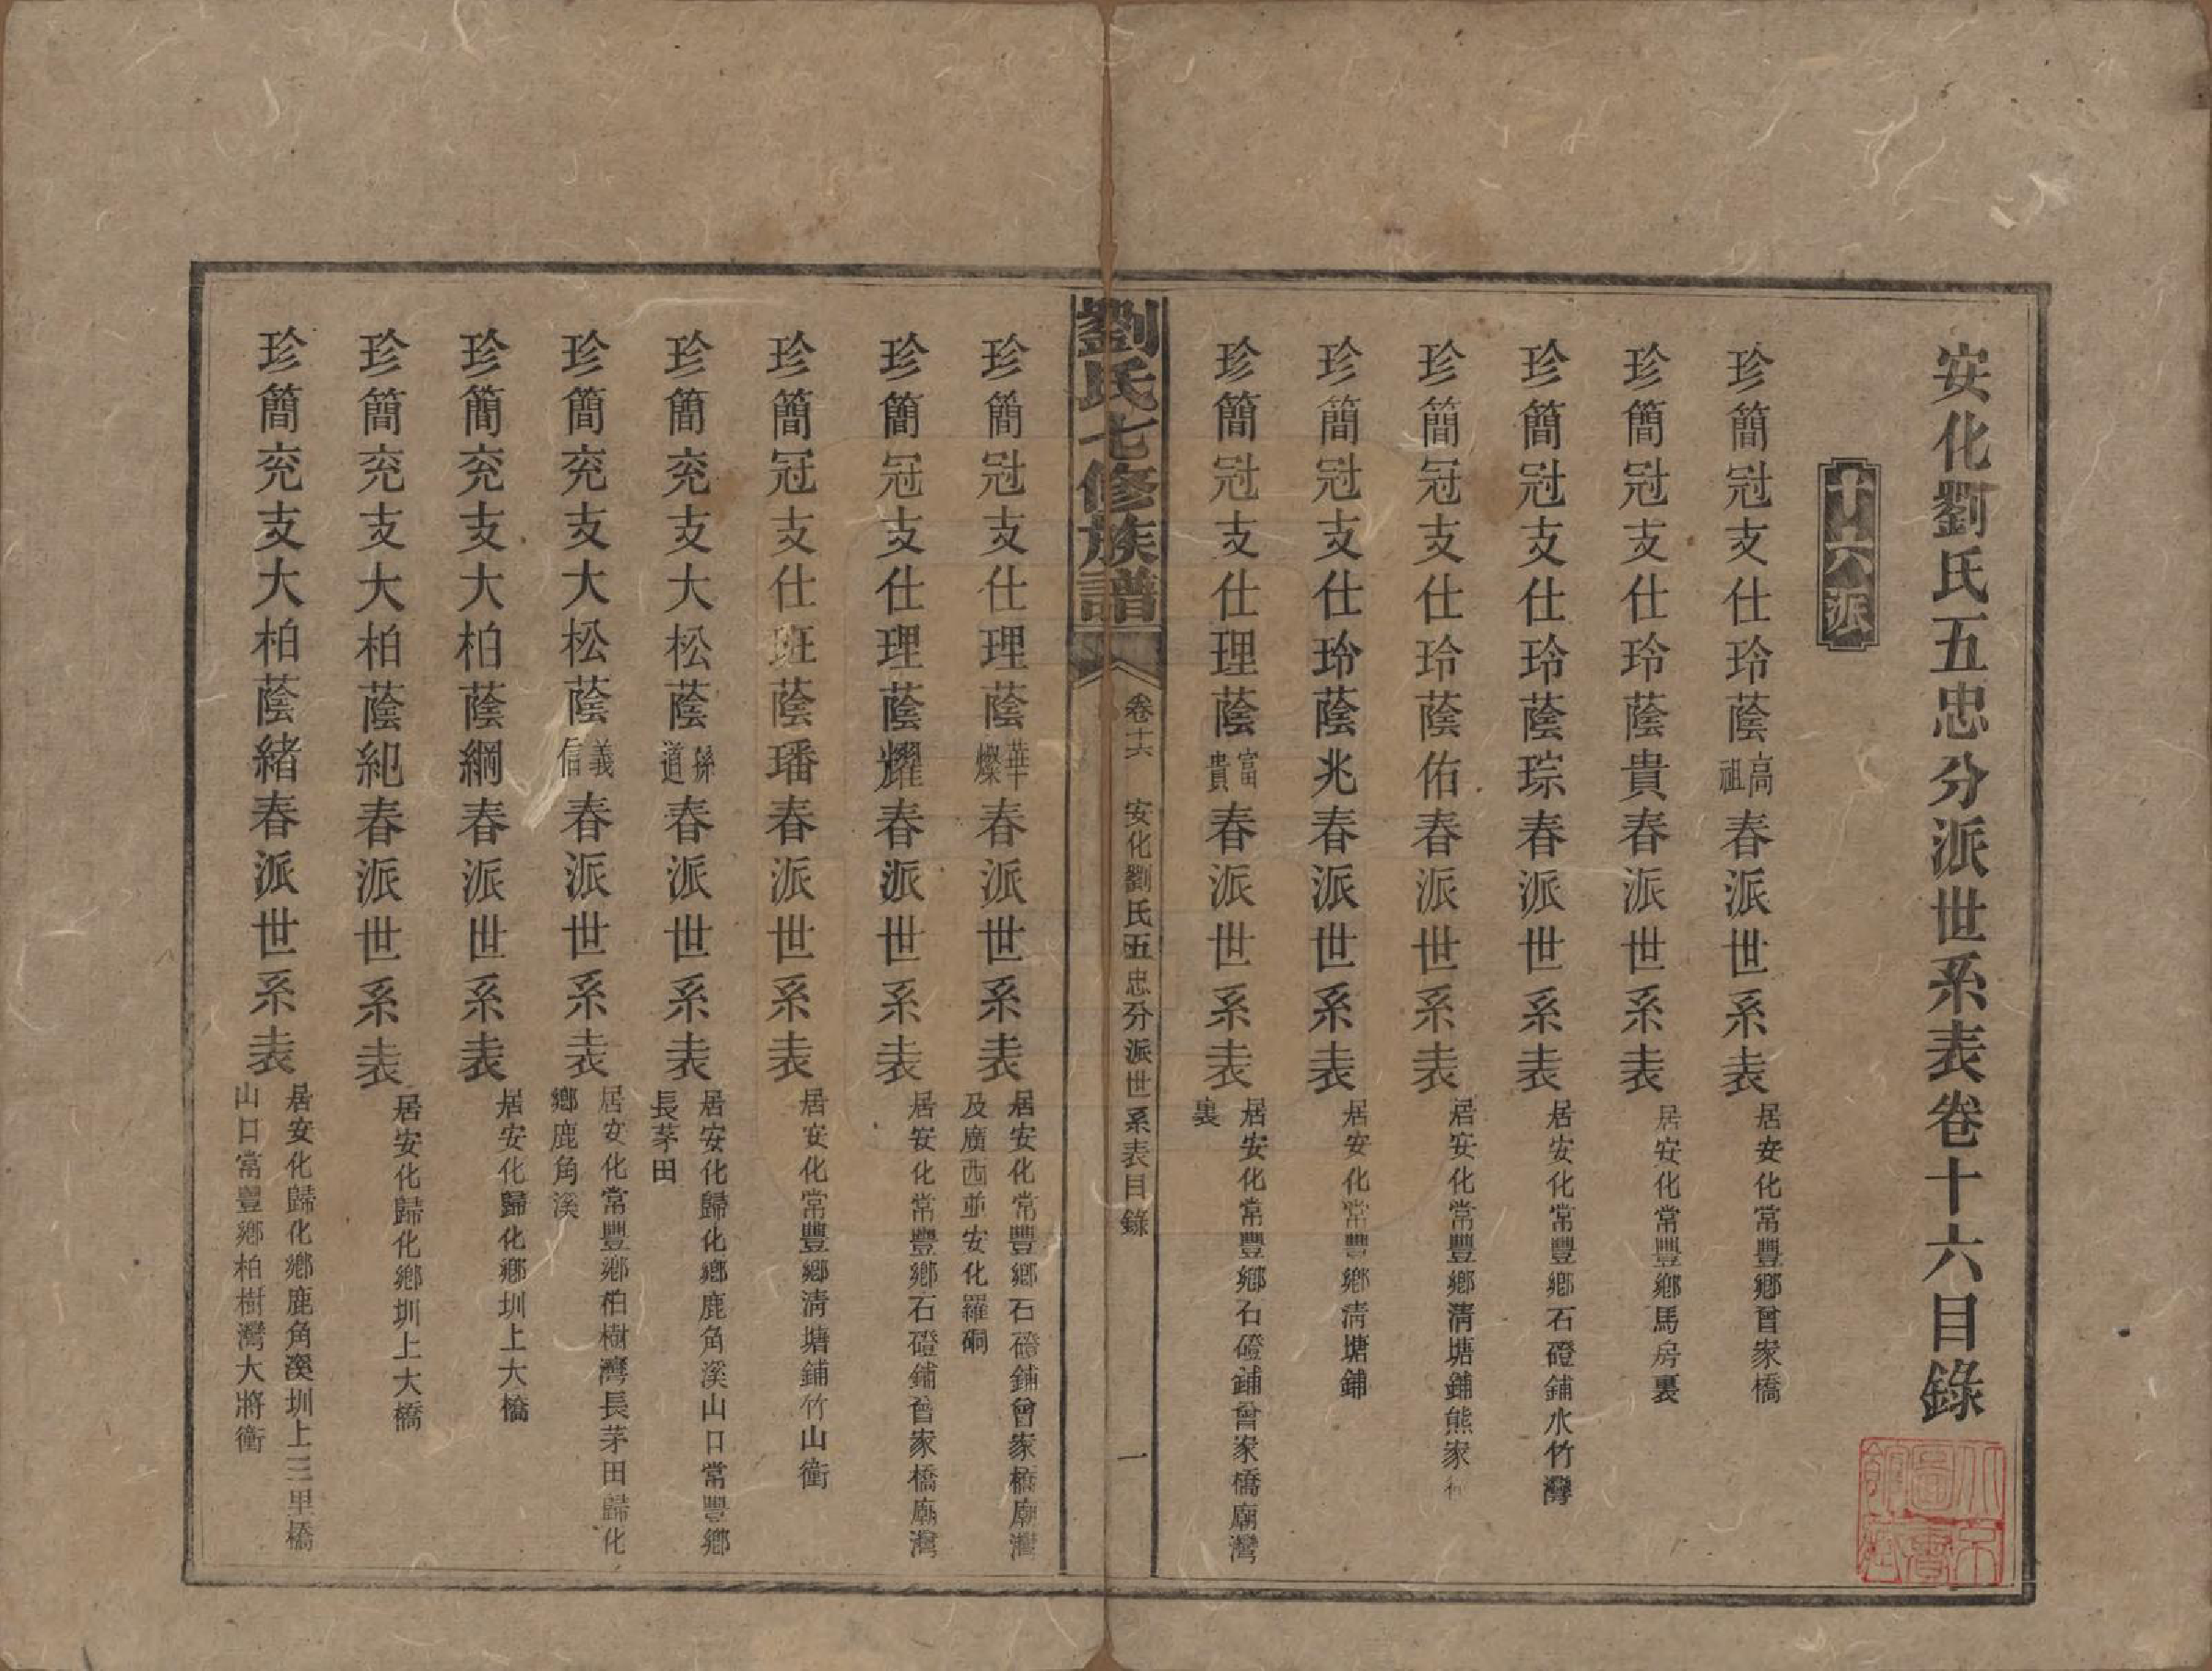 安化劉氏五忠分派世系表卷十六目錄
十六派
珍簡冠支仕玲蔭高祖春派世系表 居安化常豐鄉曾家橋
珍簡冠支仕玲蔭貴春派世系表 居安化常豐鄉馬房裏
珍簡冠支仕玲蔭琮春派世系表 居安化常豐鄉石磴鋪水竹灣
珍簡冠支仕玲蔭佑春派世系表 居安化常豐鄉清塘鋪熊家
珍簡冠支仕玲蔭兆春派世系表 居安化常豐鄉清塘鋪
珍簡冠支仕理蔭富貴春派世系表 居安化常豐鄉石磴鋪曾家橋廟灣裏
劉氏七修族譜 卷十六 安化劉氏五忠分派世系表目錄 一
珍簡冠支仕理蔭華燦春派世系表 居安化常豐鄉石磴鋪曾家橋廟灣及廣西並安化羅硐
珍簡冠支仕理蔭耀春派世系表 居安化常豐鄉石磴鋪曾家橋廟灣
珍簡冠支仕班蔭璠春派世系表 居安化常豐鄉清塘鋪竹山衝
珍簡兖支大松蔭孫道春派世系表 居安化歸化鄉鹿角溪山口常豐鄉長茅田
珍簡兖支大松蔭義信春派世系表 居安化常豐鄉柏樹灣長茅田歸化鄉鹿角溪
珍簡兖支大柏蔭綱春派世系表 居安化歸化鄉圳上大橋
珍簡兖支大柏蔭紀春派世系表 居安化歸化鄉圳上大橋
珍簡兖支大柏蔭緒春派世系表 居安化歸化鄉鹿角溪圳上三里橋山口常豐鄉柏樹灣大將衝
北京圖書館藏